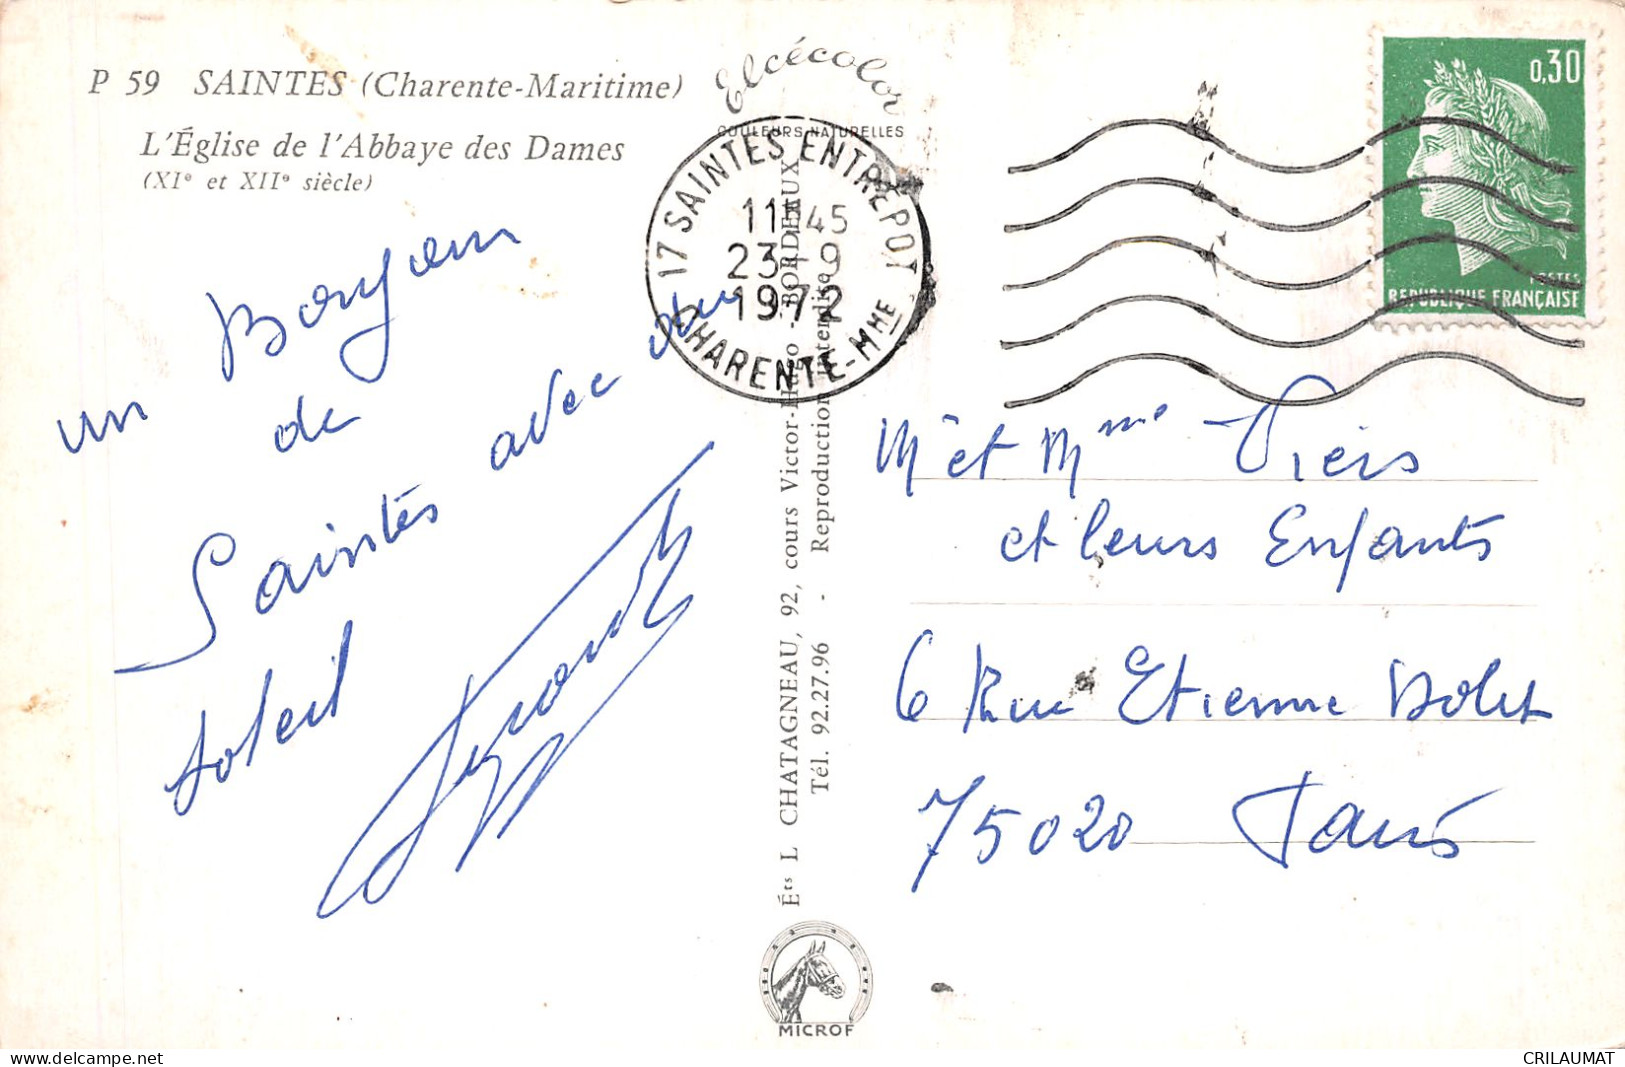 P 59 SAINTES (Charente-Maritime)
L'Église de l'Abbaye des Dames
(XIe et XIIe siècle)
un Bonjour
de
Saintes avec du
soleil
Elcécolor
COULEURS NATURELLES
17 SAINTES ENTREPOT
11H45
23-9
1972
CHARENTE-MME
Éts L CHATAGNEAU, 92, cours Victor-Hugo - BORDEAUX
Tél. 92.27.96 - Reproduction interdite
MICROF
0,30
POSTES
REPUBLIQUE FRANÇAISE
Mr et Mme
et leurs Enfants
6 Rue Etienne Dolet
75020 Paris
CRILAUMAT
delcampe.net